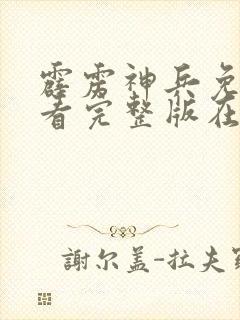 霹雳神兵免
看完整版在
謝尔盖-拉夫罗